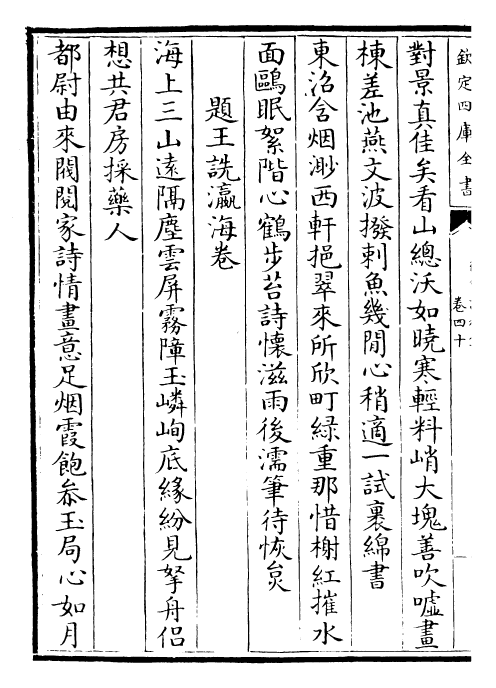 欽定四庫全書
卷四十
對景真佳矣看山總沃如曉寒輕料峭大塊善吹噓畫
棟差池燕文波撥刺魚幾閒心稍適一試裹綿書
東沼含烟渺西軒挹翠來所欣町緑重那惜榭紅摧水
面鷗眠絮階心鶴步苔詩懷滋雨後濡筆待恢炱
題王詵瀛海卷
海上三山遠隔塵雲屏霧障玉嶙峋底緣紛見拏舟侶
想共君房採藥人
都尉由來閥閱家詩情畫意足烟霞飽叅玉局心如月